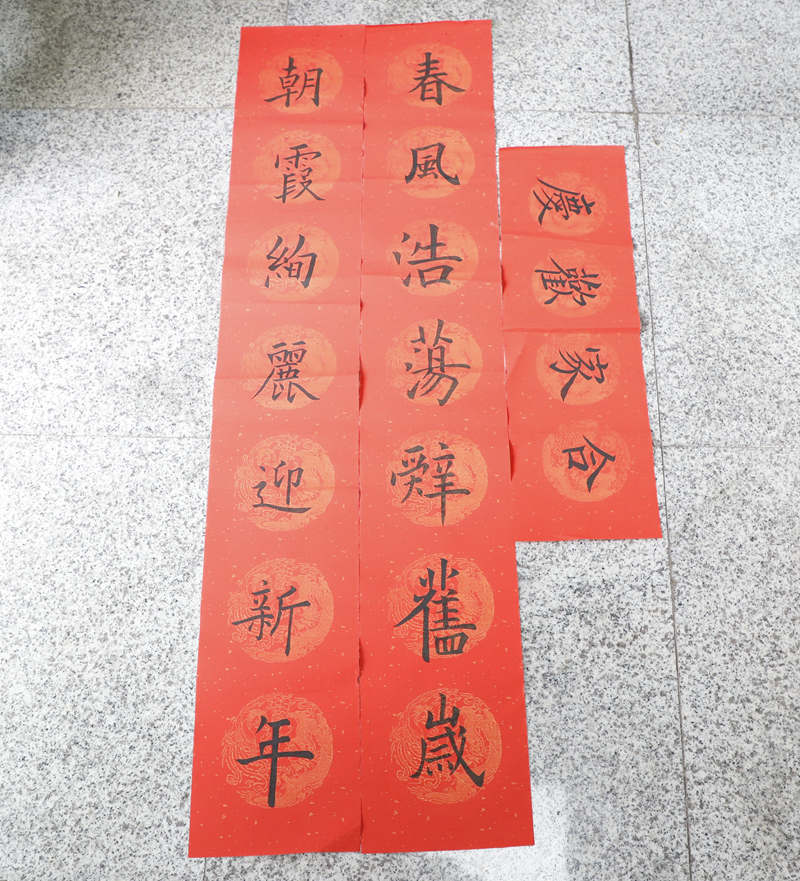 春風浩蕩辤舊嵗
朝霞絢麗迎新年
合家歡慶